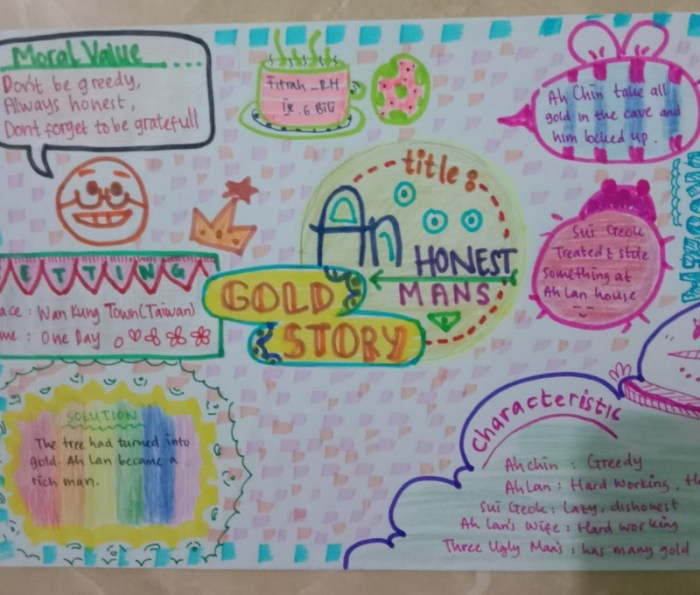 Moral Value
Don't be greedy,
Always honest,
Dont forget to be gratefull
Fitrah _ RH
Ix. 6 BIG
title :
An
HONEST
MANS
GOLD
STORY
Ah Chin take all
gold in the cave and
him locked up.
Sui Geok
Treated & stole
something at
Ah Lan house
ETTING
ace : Wan Kung Town (Taiwan)
me : One Day
SOLUTION
The tree had turned into
gold. Ah Lan became a
rich man.
Characteristic
Ah chin : Greedy
Ah Lan : Hard Working,
Sui Geok : Lazy, dishonest
Ah Lan's Wife : Hard working
Three Ugly Man's : has many gold